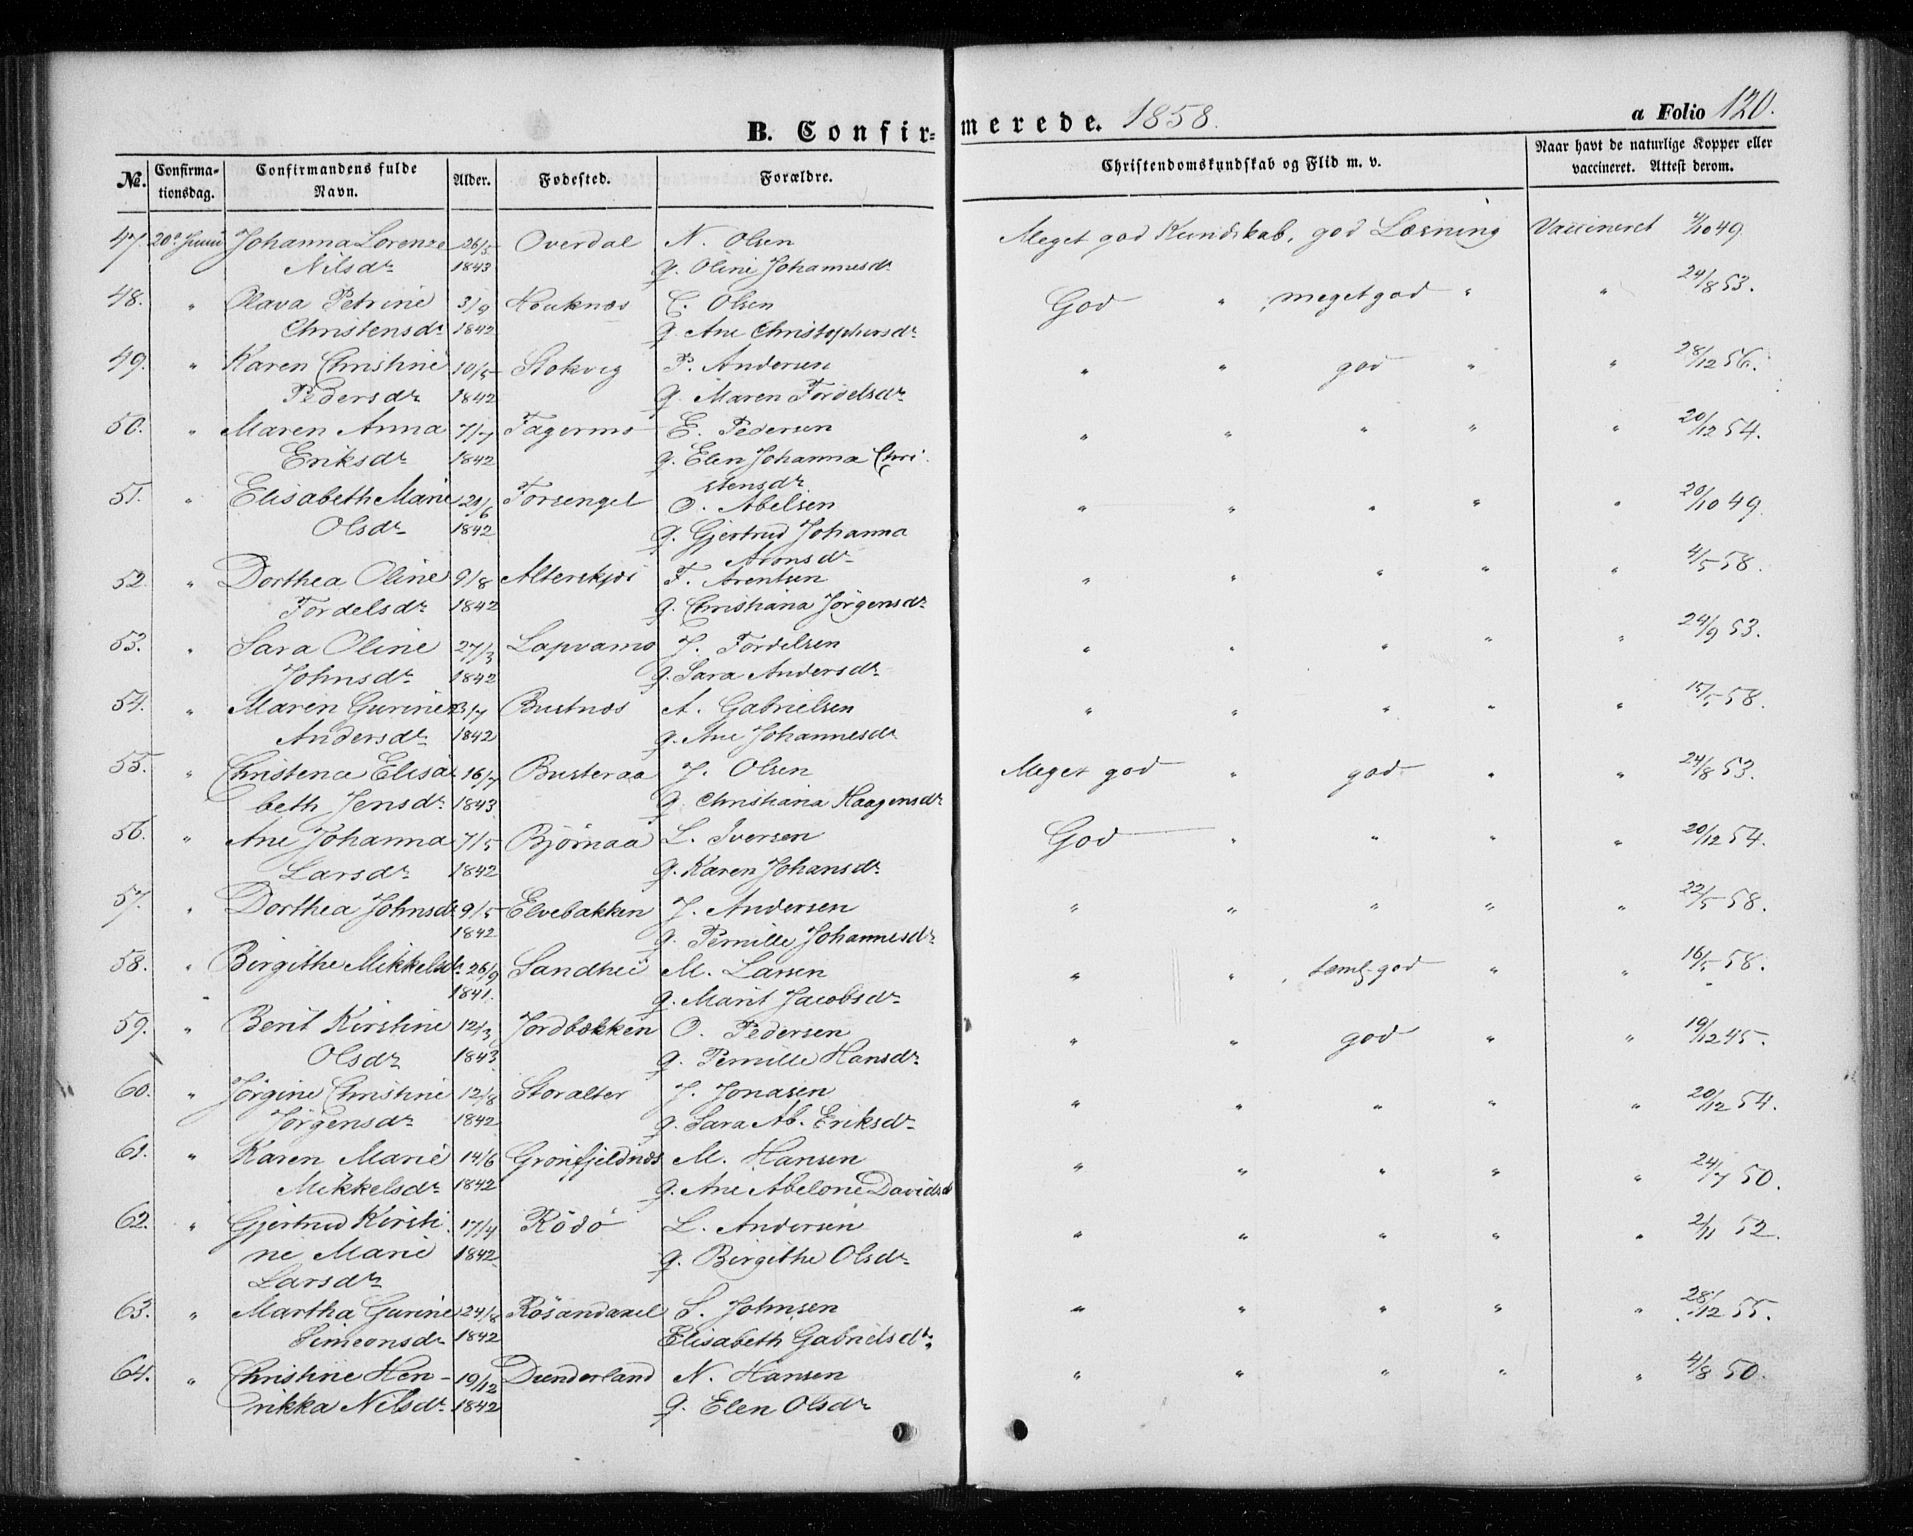 B. Confir- merede. 1858. a Folio 120.
No. Confirma- tionsdag. Confirmandens fulde Navn. Alder. Fødested. Forældre. Christendomskundskab og Flid m. v. Naar havt de naturlige Kopper eller vaccineret. Attest derom.
47. 20de Juni Johanna Lorense 26/5 Overdal N. Olsen Meget god Kundskab, god Læsning Vaccineret 4/10 49.
Nilsdr 1843 g. Oline Johannesdr
48. " Olava Petrine 3/9 Houknæs C. Olsen God " , meget god " " 24/8 53.
Christensdr 1842 g. Ane Christophersdr
49. " Karen Christine 10/5 Stokvig P. Andersen " " god " " 28/12 56.
Pedersdr 1842 g. Maren Fordelsdr
50. " Maren Anna 7/7 Fagermo E. Pedersen " " " " " 20/12 54.
Eriksdr 1842 g. Elen Johanna Chri
stensdr
51. " Elisabeth Marie 21/6 Forsengel O. Abelsen " " " " " 20/10 49.
Olsdr 1842 g. Gjertrud Johanna
Aronsdr
52. " Dorthea Oline 9/8 Alterskjæi F. Arentsen " " " " " 4/5 58.
Fordelsdr 1842 g. Christiana Jörgensdr
53. " Sara Oline 27/3 Lapvamo J. Fordelsen " " " " " 24/9 53.
Johnsdr 1842 g. Sara Andersdr
54. " Maren Gurine 23/7 Bustnæs A. Gabrielsen " " " " " 15/5 58.
Andersdr 1842 g. Ane Johannesdr
55. " Christence Elisa 16/7 Busteraa J. Olsen Meget god " god " " 24/8 53.
beth Jensdr 1843 g. Christiana Haagensdr
56. " Ane Johanna 7/5 Bjørnaa L. Iversen God " " " " 20/12 54.
Larsdr 1842 g. Karen Johansdr
57. " Dorthea Johnsdr 9/5 Elvebakken J. Andersen " " " " " 22/5 58.
1842 g. Pernille Johannesdr
58. " Birgithe Mikkelsdr 26/9 Sandhei M. Larsen " " , teml. god " " 16/5 58.
1841. g. Marit Jacobsdr
59. " Berit Kirstine 12/3 Jordbækken O. Pedersen " " god " " 19/12 45.
Olsdr 1843 g. Pernille Hansdr
60. " Jörgine Christine 12/8 Storalter J. Jonasen " " " " " 20/12 54.
Jörgensdr 1842 g. Sara Ab. Eriksdr
61. " Karen Marie 14/6 Grønfjeldnæs M. Hansen " " " " " 24/7 50.
Mikkelsdr 1842 g. Ane Abelone Davidsd
62. " Gjertrud Kirsti 17/4 Rödö L. Andersen " " " " " 2/11 52.
ne Marie 1842 g. Birgithe Olsdr
Larsdr
63. " Martha Gurine 24/8 Rösandaxel S. Johnsen " " " " " 28/12 55.
Simeonsdr 1842 Elisabeth Gabrielsdr
64. " Christine Hen- 19/12 Dunderland N. Hansen " " " " " 4/8 50.
rikka Nilsdr 1842 g. Elen Olsdr